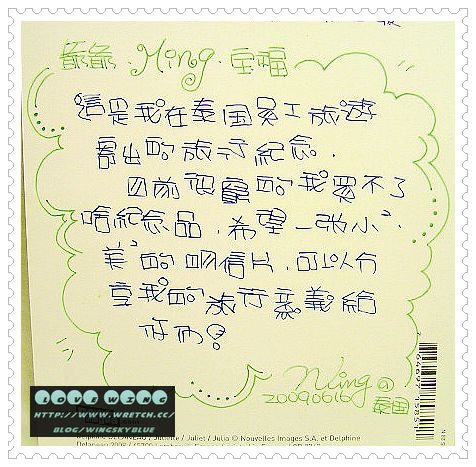 爺爺.Ming.宝福
這是我在泰国員工旅遊
寄出的旅行紀念。
目前很窮的我買不了
啥紀念品,希望一張小²
美²的明信片,可以分
享我的旅行意義給
你們!
Ning @
20090616 泰国
LOVE WING
HTTP://WWW.WRETCH.CC/
BLOG/WINGSKYBLUE
/ Juliette / Juliet / Julia © Nouvelles Images S.A. et Delphine